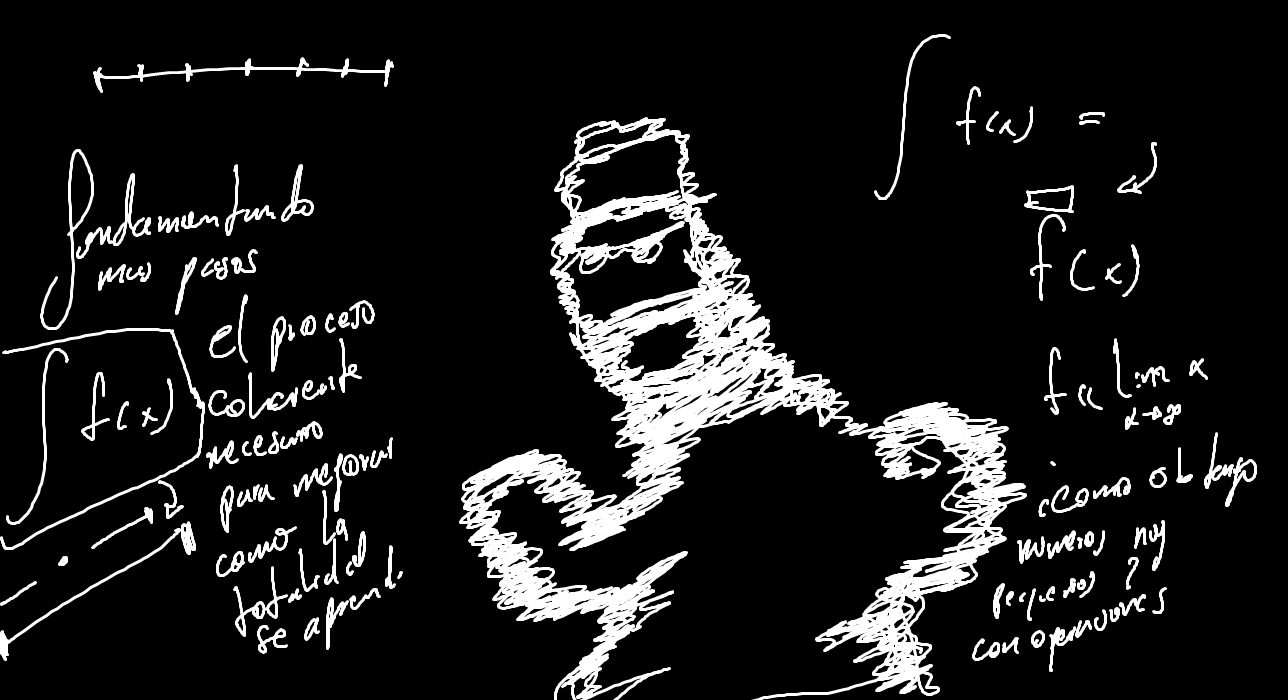 fundamentando
mas pasos
∫ f(x)
el proceso
coherente
necesario
para mejorar
como la
totalidad
se aprende
∫ f(x) =
f(x)
lim x
¿Como obtengo
numeros muy
pequeños ?
con operaciones